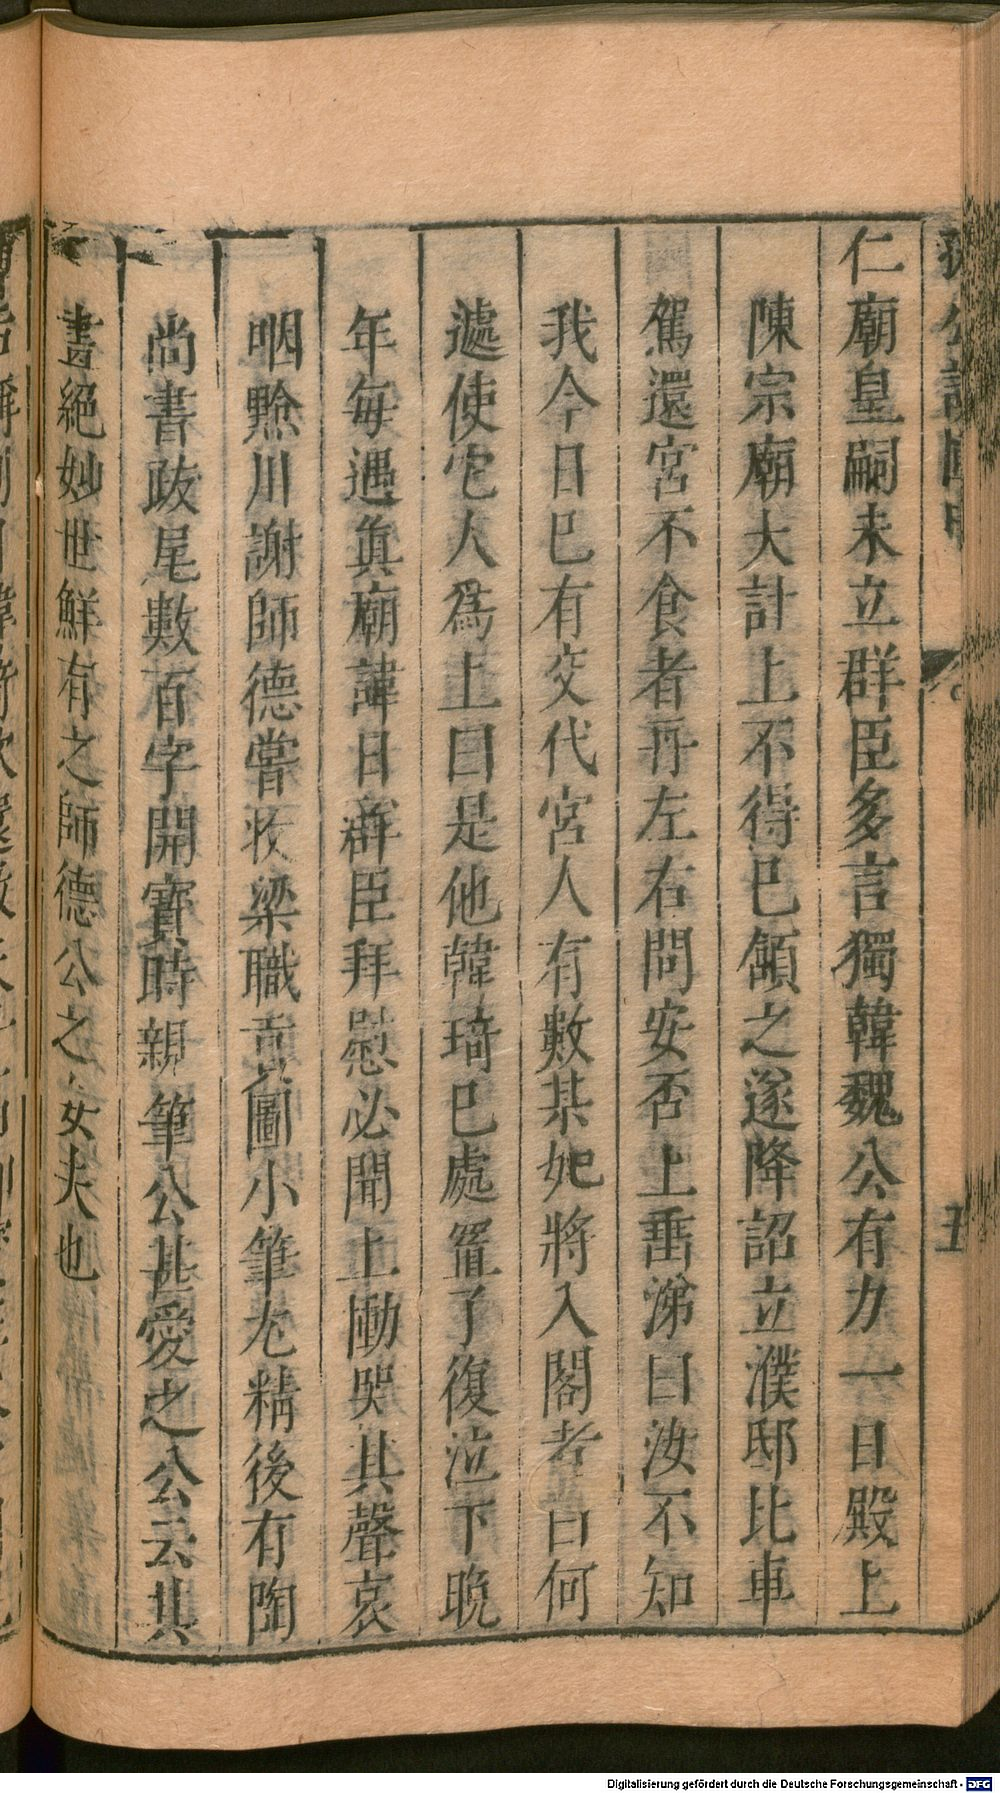 仁廟皇嗣未立群臣多言獨韓魏公有力一日殿上
陳宗廟大計上不得已頷之遂降詔立濮邸比車
駕還宮不食者再左右問安否上垂涕曰汝不知
我今日已有交代宮人有數某妃將入閤者曰何
遽使它人爲上曰是他韓琦已處置了復泣下晚
年每遇眞廟諱日群臣拜慰必聞上慟哭其聲哀
咽黟川謝師德嘗收梁職貢圖小筆尤精後有陶
尚書跋尾數百字開寶時親筆公甚愛之公云其
書絕妙世鮮有之師德公之女夫也
Digitalisierung gefördert durch die Deutsche Forschungsgemeinschaft - DFG